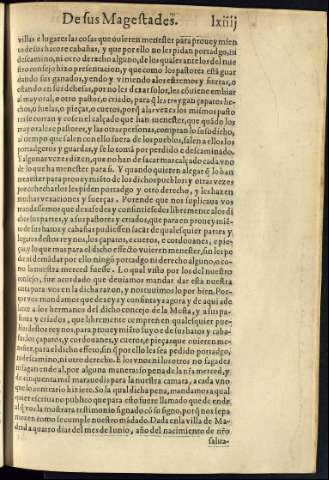 De sus Magestades. lxiiij
villas e lugares las cosas que ouieren menester para proueymien
to de sus hatos e cabañas, y que por ello no les pidan portadgo, ni
descamino, ni otro derecho alguno, de los quales ante los del nue
stro consejo hizo presentacion, y que como los pastores está guar
dando sus ganados, yendo y viniendo a los estremos y sierras, o
estando en sus dehesas, por no les dexar solos, les cóuiene embiar
al mayoral, o otro pastor, o criado, para q̃ les traygan çapatos he-
chos, o suelas, o pieças, o cueros, porq̃ a las vezes los mismos pasto
res se corran y cosen el calçado que han menester, que quádo los
mayorales e pastores, y las otras personas, compran lo suso dicho,
al tiempo que salen con ello fuera de los pueblos, salen a ellos los
portadgeros y guardas, y se lo toma por perdido e descaminado,
Y algunas vezes dizen, que no han de sacar mas calçado cada vno
de lo que ha menester para si. Y quando quieren alegar q̃ lo han
menester para prouey miéto de los dichos pueblos y otras vezes
por cohecharlos les piden portadgo y otro derecho, y les hazen
muchas vexaciones y fuerças. Porende que nos suplicaua vos
mandassemos que de aqui adelante consintiessedes libremente a los di
chos sus partes, y a sus pastores y criados, que para en prouey mié-
to de sus hatos y cabañas pudiessen sacar de qualesquier partes y
lugares destos reynos, los çapatos, e cueros, e cordouanes, e pie-
ças, y lo que mas para el dicho effecto vuieren menester, sin les pe
dir ni demádar por ello ningú portadgo ni derecho alguno, o co-
mo la nuestra merced fuesse. Lo qual visto por los del nuestro
consejo, fue acordado que deuiamos mandar dar esta nuestra
carta para vos en la dicha razon, y nos tuuimoslo por bien. Por-
que vos mandamos que dexeys y consintays agora y de aqui ade
lante a los hermanos del dicho concejo de la Mesta, y a sus pa-
stores y criados, que libremente compren en qualesquier pue-
blos destos reynos, para proueymiéto suyo e de sus hatos y caba-
ñas, los çapatos, y cordouanes, y cueros, e pieças que ouieren me-
nester, para el dicho effecto, sin q̃ por ello les sea pedido portadgo,
ni descamino, ni otro derecho. E los vnos ni los otros no fagades
ni fagan ende al, por alguna manera so pena de la nra merced, y
de cinquenta mil marauedis para la nuestra camara, a cada vno
que lo contrario hiziere. So la qual dicha pena, mandamos a qual
quier escriuano publico que para esto fuere llamado que de ende
al q̃ vos la mostrare testimonio signado có su signo, porq̃ nos sepa
mos en como se cumple nuestro mádado. Dada en la villa de Ma-
drid a quatro dias del mes de Iunio, año del nacimiento de nřo
salua-